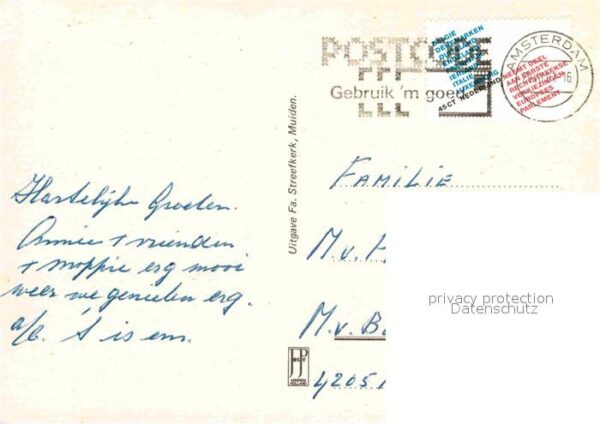 POSTCODE
Gebruik 'm goed
BELGIE
DENEMARKEN
DUITSLAND
ENGELAND
IERLAND
ITALIE
LUXEMBURG
45CT NEDERLAND
NEEMT DEEL
AAN EERSTE
RECHTSTREEKSE
VERKIEZINGEN
EUROPEES
PARLEMENT
AMSTERDAM
Uitgave Fa. Streefkerk, Muiden.
Hartelijke Groeten.
Annie + vrienden
+ moppie erg mooi
weer we genieten erg.
a/b. 't is em.
FAMILIE
M.v.
M.v. B
4205
privacy protection
Datenschutz